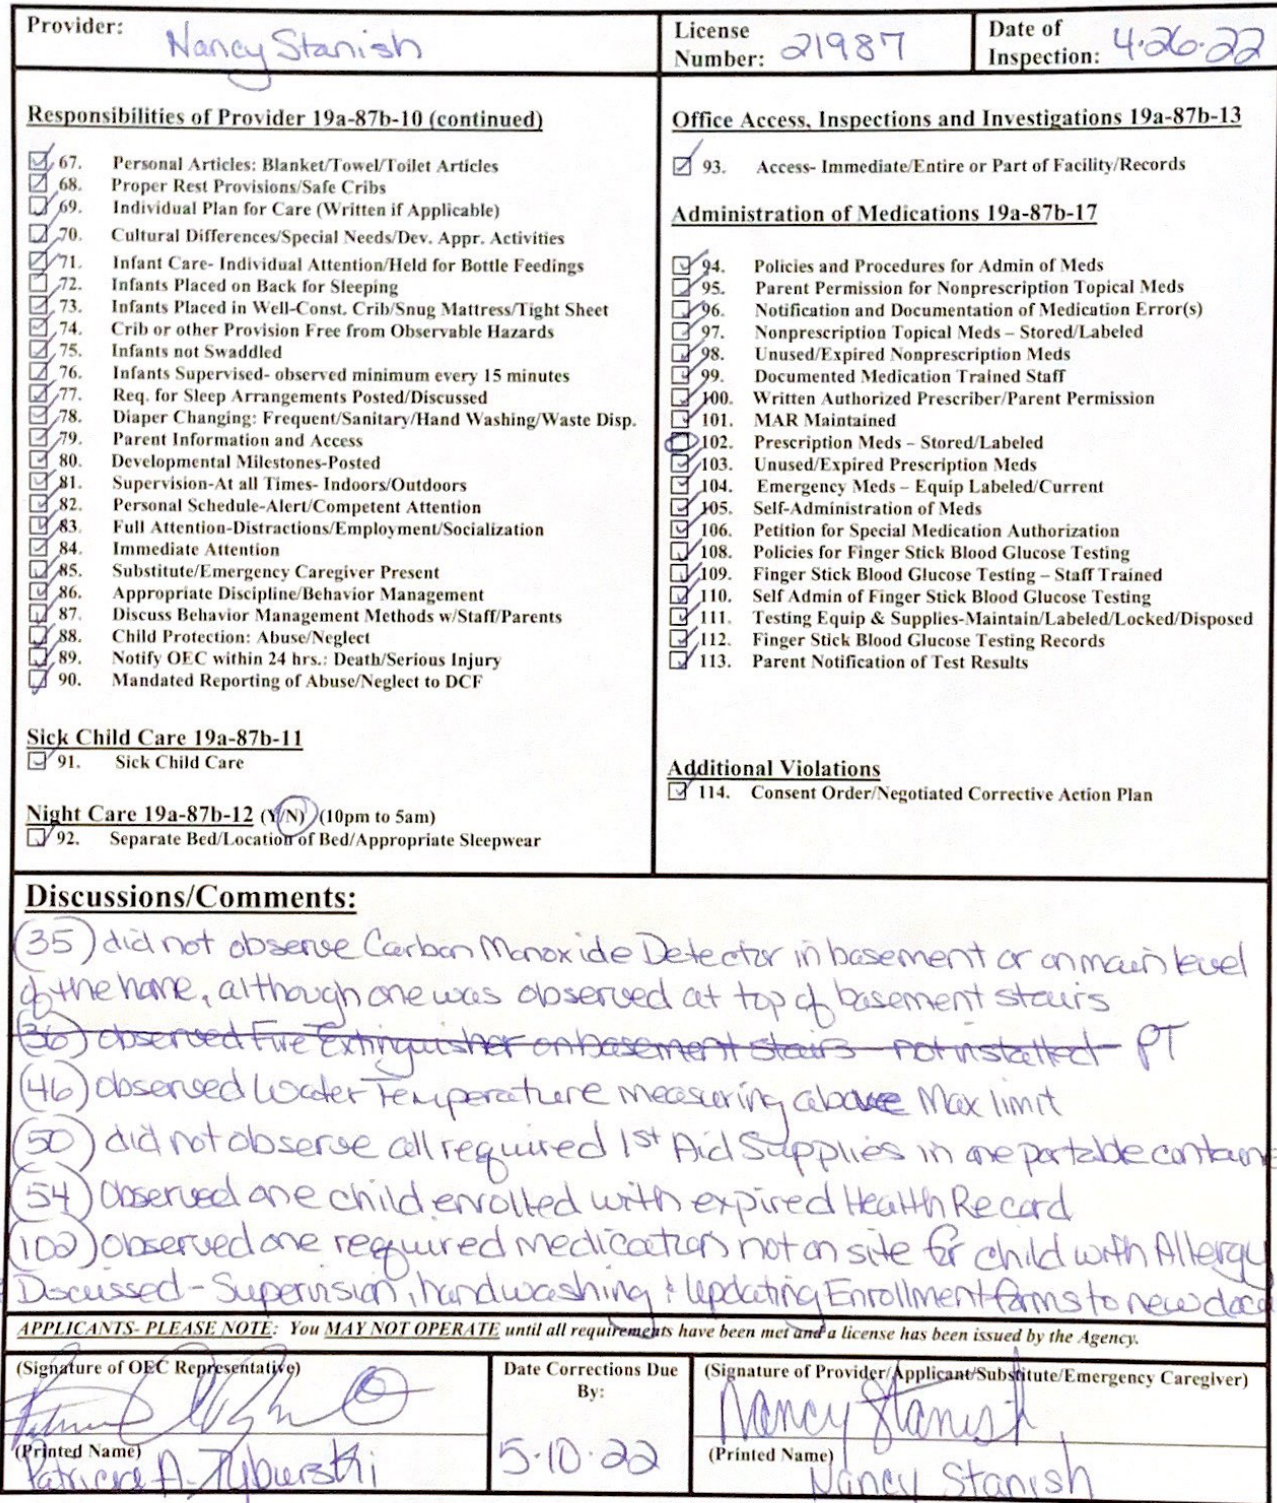 Provider: Nancy Stanish
License Number: 21987
Date of Inspection: 4.26.22
Responsibilities of Provider 19a-87b-10 (continued)
67. Personal Articles: Blanket/Towel/Toilet Articles
68. Proper Rest Provisions/Safe Cribs
69. Individual Plan for Care (Written if Applicable)
70. Cultural Differences/Special Needs/Dev. Appr. Activities
71. Infant Care- Individual Attention/Held for Bottle Feedings
72. Infants Placed on Back for Sleeping
73. Infants Placed in Well-Const. Crib/Snug Mattress/Tight Sheet
74. Crib or other Provision Free from Observable Hazards
75. Infants not Swaddled
76. Infants Supervised- observed minimum every 15 minutes
77. Req. for Sleep Arrangements Posted/Discussed
78. Diaper Changing: Frequent/Sanitary/Hand Washing/Waste Disp.
79. Parent Information and Access
80. Developmental Milestones-Posted
81. Supervision-At all Times- Indoors/Outdoors
82. Personal Schedule-Alert/Competent Attention
83. Full Attention-Distractions/Employment/Socialization
84. Immediate Attention
85. Substitute/Emergency Caregiver Present
86. Appropriate Discipline/Behavior Management
87. Discuss Behavior Management Methods w/Staff/Parents
88. Child Protection: Abuse/Neglect
89. Notify OEC within 24 hrs.: Death/Serious Injury
90. Mandated Reporting of Abuse/Neglect to DCF
Sick Child Care 19a-87b-11
91. Sick Child Care
Night Care 19a-87b-12 (Y/N) (10pm to 5am)
92. Separate Bed/Location of Bed/Appropriate Sleepwear
Office Access, Inspections and Investigations 19a-87b-13
93. Access- Immediate/Entire or Part of Facility/Records
Administration of Medications 19a-87b-17
94. Policies and Procedures for Admin of Meds
95. Parent Permission for Nonprescription Topical Meds
96. Notification and Documentation of Medication Error(s)
97. Nonprescription Topical Meds – Stored/Labeled
98. Unused/Expired Nonprescription Meds
99. Documented Medication Trained Staff
100. Written Authorized Prescriber/Parent Permission
101. MAR Maintained
102. Prescription Meds – Stored/Labeled
103. Unused/Expired Prescription Meds
104. Emergency Meds – Equip Labeled/Current
105. Self-Administration of Meds
106. Petition for Special Medication Authorization
108. Policies for Finger Stick Blood Glucose Testing
109. Finger Stick Blood Glucose Testing – Staff Trained
110. Self Admin of Finger Stick Blood Glucose Testing
111. Testing Equip & Supplies-Maintain/Labeled/Locked/Disposed
112. Finger Stick Blood Glucose Testing Records
113. Parent Notification of Test Results
Additional Violations
114. Consent Order/Negotiated Corrective Action Plan
Discussions/Comments:
(35) did not observe Carbon Monoxide Detector in basement or on main level
of the home, although one was observed at top of basement stairs
(36) observed Fire Extinguisher on basement stairs - not installed - PT
(46) observed Water Temperature measuring above Max limit
(50) did not observe all required 1st Aid Supplies in one portable containe
(54) Observed one child enrolled with expired Health Record
(102) observed one required medication not on site for child with Allergy
Discussed - Supervision, handwashing & Updating Enrollment forms to new docs
APPLICANTS- PLEASE NOTE: You MAY NOT OPERATE until all requirements have been met and a license has been issued by the Agency.
(Signature of OEC Representative)
(Printed Name)
Patricia A. Tyburski
Date Corrections Due By:
5.10.22
(Signature of Provider/Applicant/Substitute/Emergency Caregiver)
Nancy Stanish
(Printed Name)
Nancy Stanish